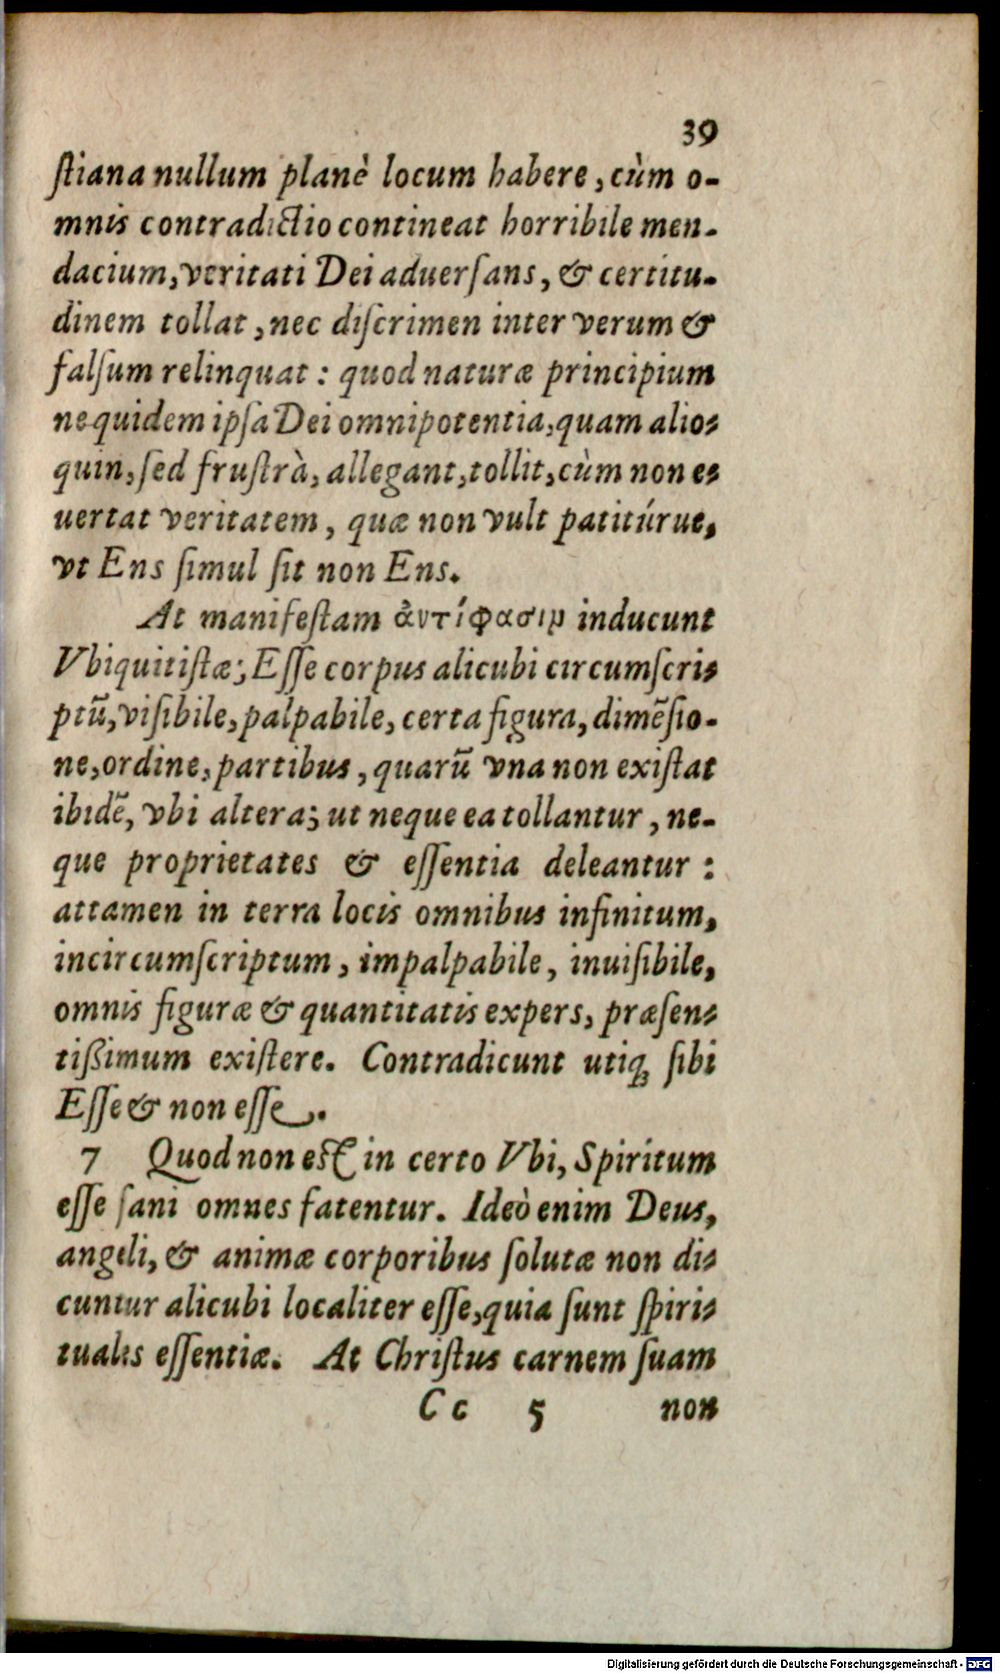 39
ſtiana nullum planè locum habere, cùm o-
mnis contradictio contineat horribile men-
dacium, veritati Dei aduerſans, & certitu-
dinem tollat, nec diſcrimen inter verum &
falſum relinquat: quod naturæ principium
ne quidem ipſa Dei omnipotentia, quam alio-
quin, ſed fruſtrà, allegant, tollit, cùm non e-
uertat veritatem, quæ non vult patitúrue,
vt Ens ſimul ſit non Ens.
At manifeſtam ἀντίφασιμ inducunt
Vbiquitiſtæ; Eſſe corpus alicubi circumſcri-
ptū, viſibile, palpabile, certa figura, dimēſio-
ne, ordine, partibus, quarū vna non exiſtat
ibidē, vbi altera; ut neque ea tollantur, ne-
que proprietates & eſſentia deleantur:
attamen in terra locis omnibus infinitum,
incircumſcriptum, impalpabile, inuiſibile,
omnis figuræ & quantitatis expers, præſen-
tißimum exiſtere. Contradicunt utiq; ſibi
Eſſe & non eſſe.
7 Quod non est in certo Vbi, Spiritum
eſſe ſani omnes fatentur. Ideò enim Deus,
angeli, & animæ corporibus ſolutæ non di-
cuntur alicubi localiter eſſe, quia ſunt ſpiri-
tualis eſſentiæ. At Chriſtus carnem ſuam
Cc 5 non
Digitalisierung gefördert durch die Deutsche Forschungsgemeinschaft - DFG